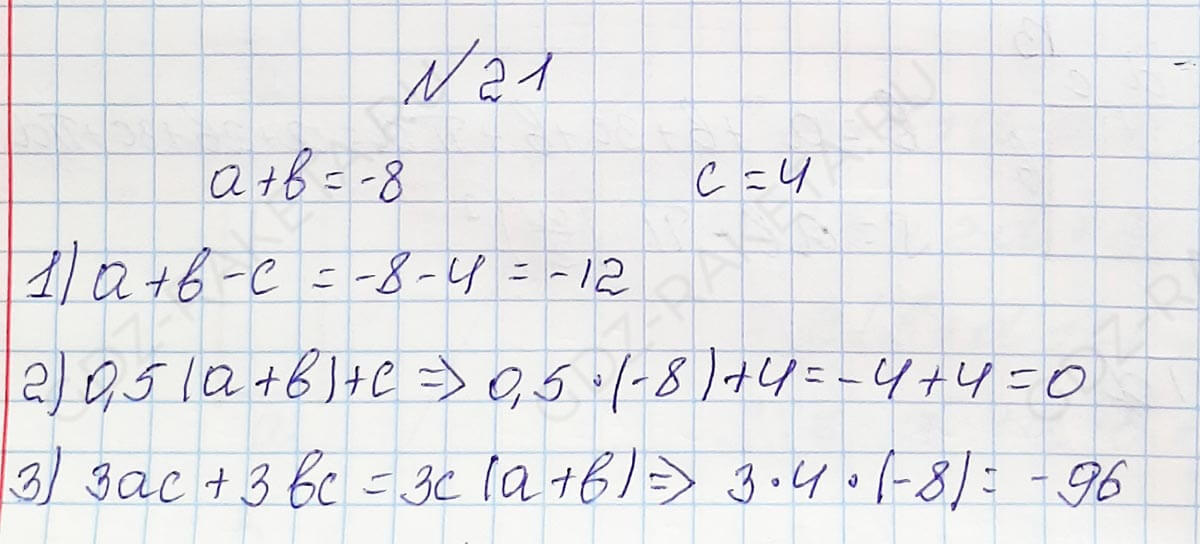 № 21
a+b=-8 c=4
1) a+b-c = -8-4 = -12
2) 0,5(a+b)+c => 0,5·(-8)+4=-4+4=0
3) 3ac+3bc=3c(a+b)=> 3·4·(-8)= -96